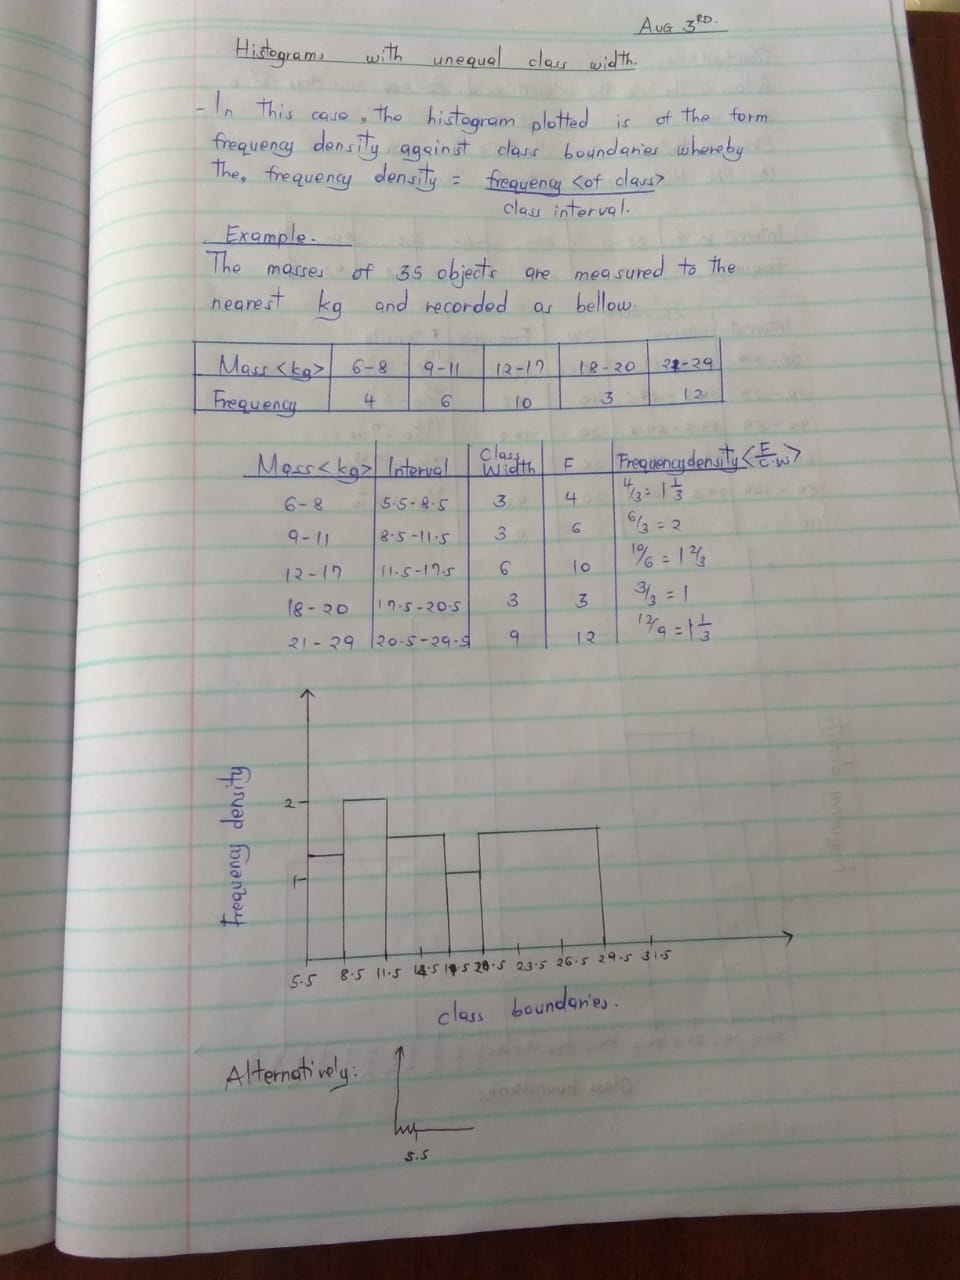 AUG 3RD.
Histograms with unequal class width.
- In this case, the histogram plotted is of the form
frequency density against class boundaries whereby
the, frequency density = frequency <of class>
class interval.
Example.
The masses of 35 objects are measured to the
nearest kg and recorded as bellow.
Mass <kg> 6-8 9-11 12-17 18-20 21-29
Frequency 4 6 10 3 12
Mass <kg> Interval Class Width F Frequency density <F/C.W>
6-8 5.5-8.5 3 4 4/3 = 1 1/3
9-11 8.5-11.5 3 6 6/3 = 2
12-17 11.5-17.5 6 10 10/6 = 1 2/3
18-20 17.5-20.5 3 3 3/3 = 1
21-29 20.5-29.5 9 12 12/9 = 1 1/3
frequency density
2
1
5.5 8.5 11.5 14.5 17.5 20.5 23.5 26.5 29.5 31.5
class boundaries.
Alternatively:
5.5